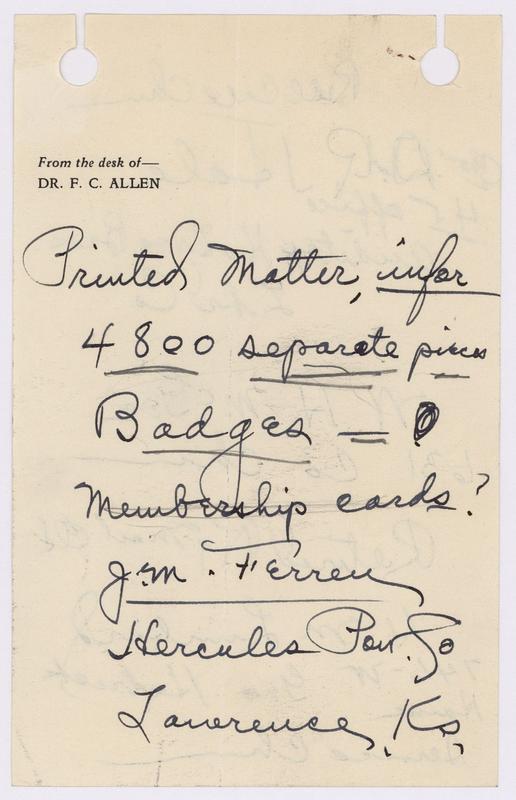 From the desk of—
DR. F. C. ALLEN
Printed Matter, infor
4800 separate pieces
Badges — ?
Membership cards?
J.M. Ferren
Hercules Pow. Co
Lawrence, Ks,